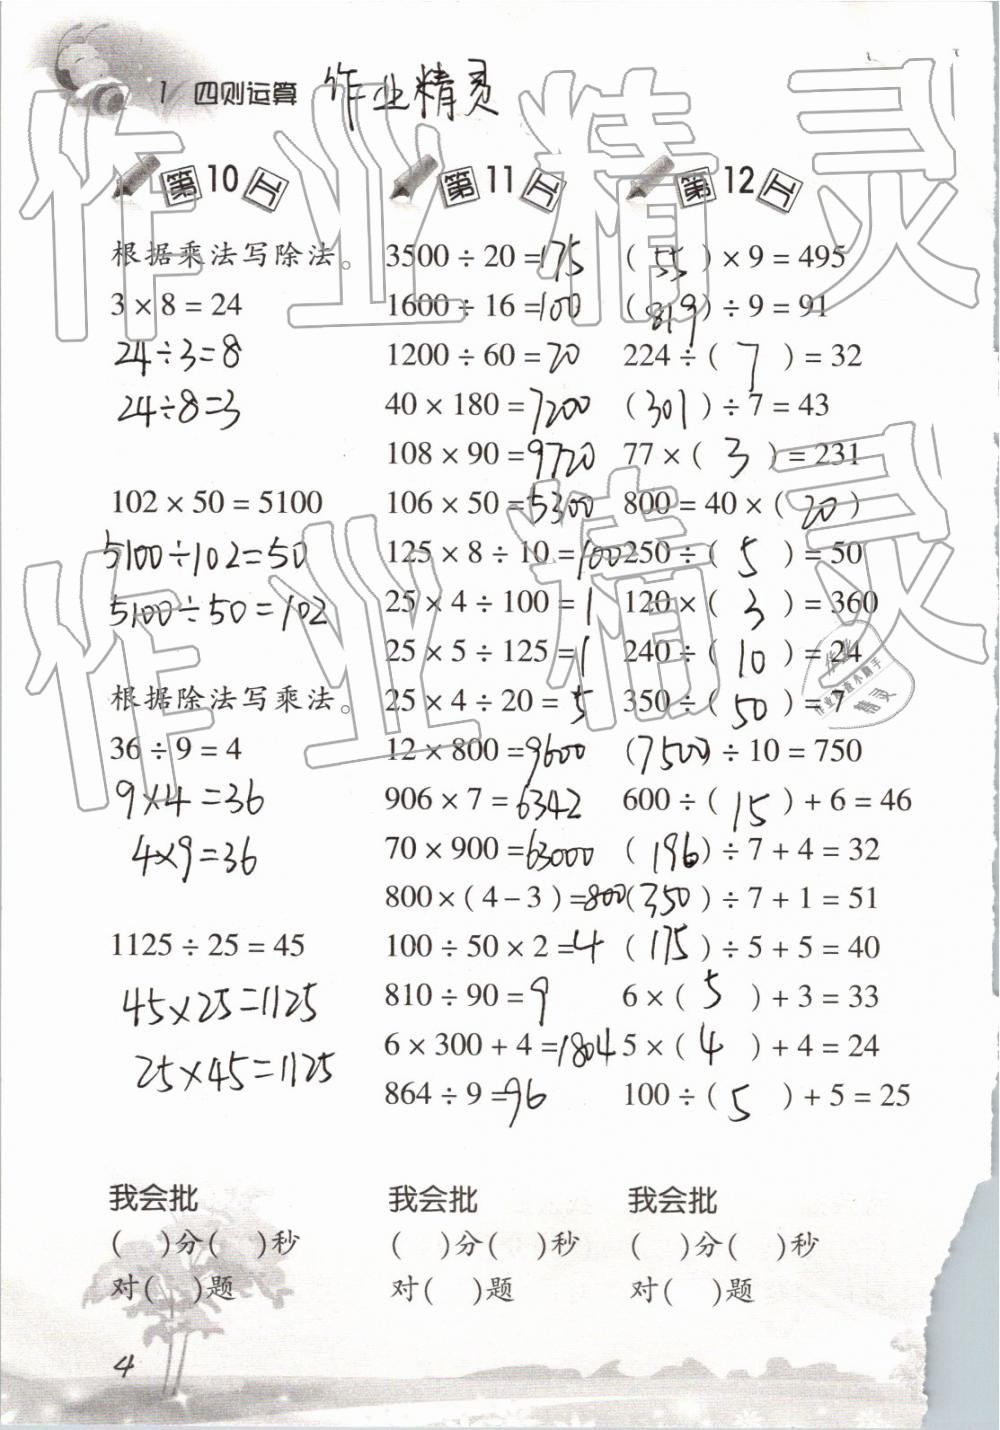 1 四则运算 作业精灵
第10工
根据乘法写除法。
3 × 8 = 24
24÷3=8
24÷8=3
102 × 50 = 5100
5100÷102=50
5100÷50=102
根据除法写乘法。
36 ÷ 9 = 4
9×4=36
4×9=36
1125 ÷ 25 = 45
45×25=1125
25×45=1125
我会批
( )分( )秒
对( )题
第11工
3500 ÷ 20 =175
1600 ÷ 16 =100
1200 ÷ 60 =20
40 × 180 =7200
108 × 90 =9720
106 × 50 =5300
125 × 8 ÷ 10 =100
25 × 4 ÷ 100 =1
25 × 5 ÷ 125 =1
25 × 4 ÷ 20 =5
12 × 800 =9600
906 × 7 =6342
70 × 900 =63000
800 × ( 4 − 3 ) =800
100 ÷ 50 × 2 =4
810 ÷ 90 =9
6 × 300 + 4 =1804
864 ÷ 9 =96
我会批
( )分( )秒
对( )题
第12工
( 55 ) × 9 = 495
( 819 ) ÷ 9 = 91
224 ÷ ( 7 ) = 32
( 301 ) ÷ 7 = 43
77 × ( 3 ) = 231
800 = 40 × ( 20 )
250 ÷ ( 5 ) = 50
120 × ( 3 ) = 360
240 ÷ ( 10 ) = 24
350 ÷ ( 50 ) = 7
( 7500 ) ÷ 10 = 750
600 ÷ ( 15 ) + 6 = 46
( 196 ) ÷ 7 + 4 = 32
( 350 ) ÷ 7 + 1 = 51
( 175 ) ÷ 5 + 5 = 40
6 × ( 5 ) + 3 = 33
5 × ( 4 ) + 4 = 24
100 ÷ ( 5 ) + 5 = 25
我会批
( )分( )秒
对( )题
4
作业精灵
作业精灵